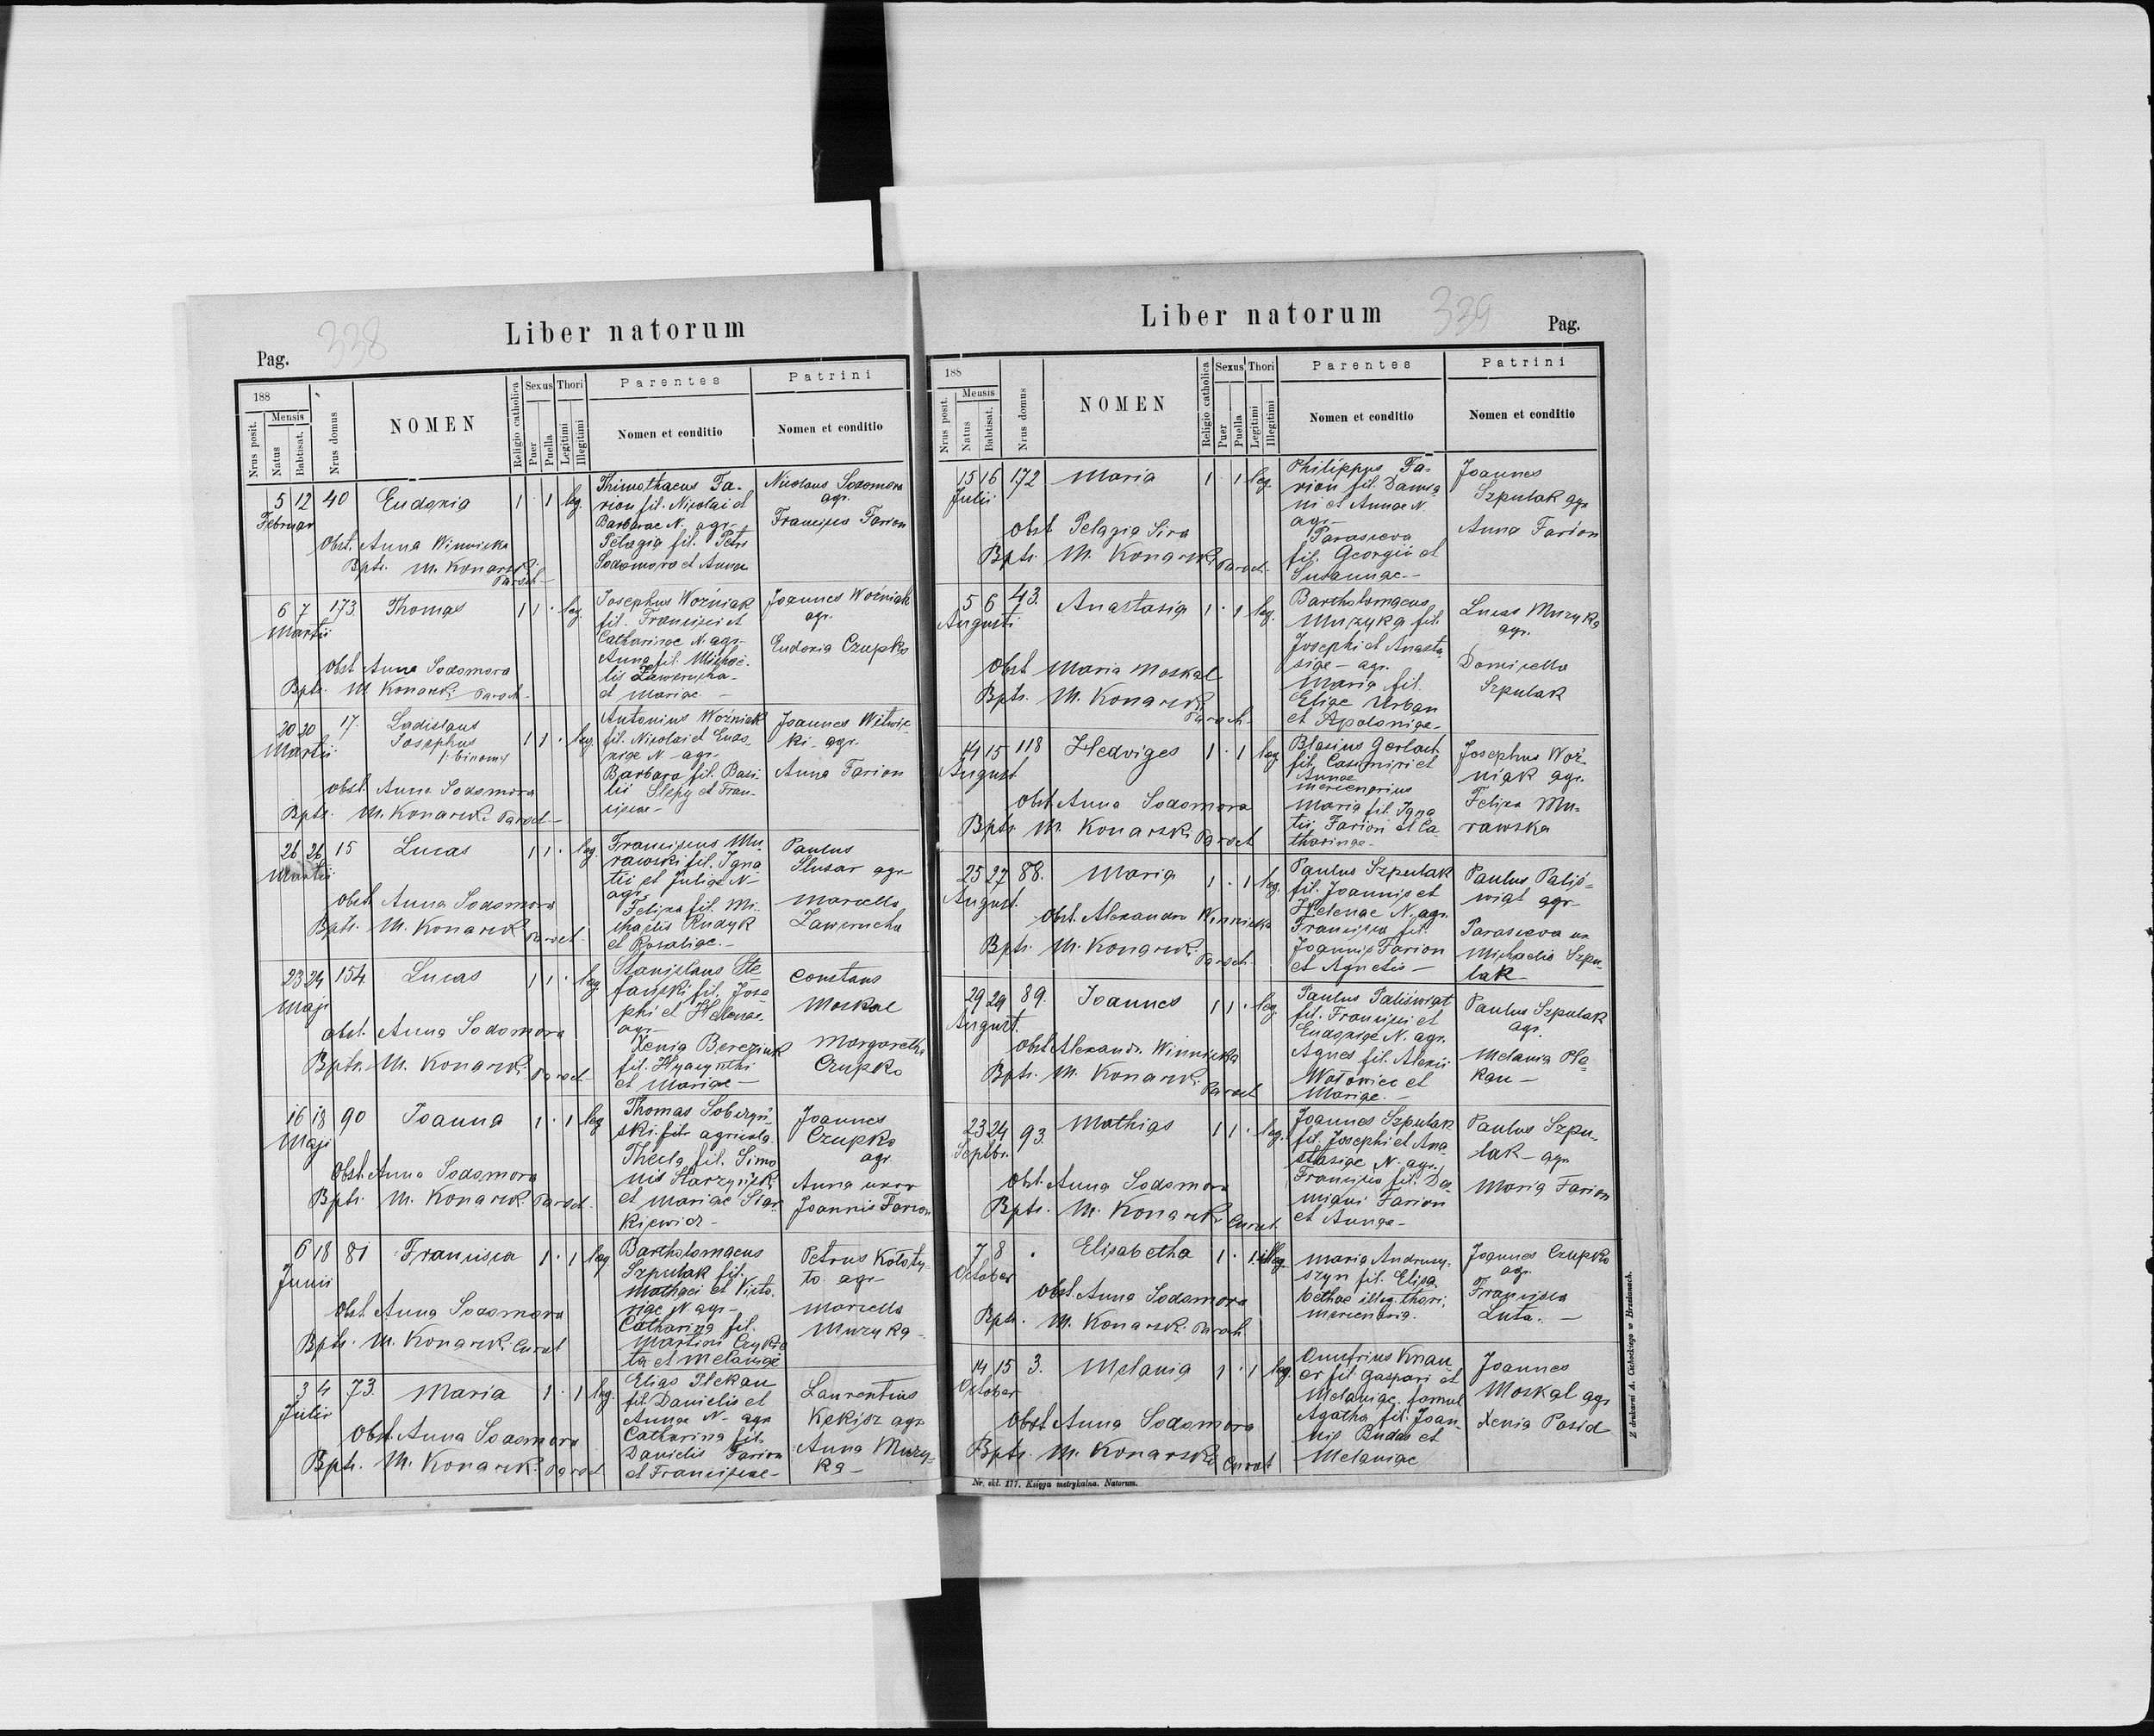 338
Liber natorum
Pag.
188
Nrus posit.
Mensis
Natus
Babtisat.
Nrus domus
NOMEN
Religio catholica
Sexus
Puer
Puella
Thori
Legitimi
Illegitimi
Parentes
Nomen et conditio
Patrini
Nomen et conditio
5 12 40 Eudoxia 1 · 1 leg.
Februar
Obst. Anna Winnicka
Bpts. M. Konarski
Paroch-
Thimothaeus Fa-
rion fil. Nicolai et
Barbarae N. agr-
Pelagia fil. Petri
Sodomora et Annae
Nicolaus Sodomora
agr.
Francisca Farion
6 7 173 Thomas 1 1 · leg.
Martii
Obst. Anna Sodomora
Bpts. M. Konarski Paroch-
Josephus Woźniak
fil. Francisci et
Catharinae N. agr-
Anna fil. Michae-
lis Zawerucha-
et Mariae. -
Joannes Woźniak
agr.
Eudoxia Czupko
20 30 17. Ladislaus
Martii Josephus 1 1 · leg.
/: binom :/
obst. Anna Sodomora
Bpts. M. Konarski Paroch-
Antonius Woźniak
fil. Nicolai et Eudo-
xiae N - agr-
Barbara fil. Basi-
lii Slepy et Fran-
ciscae-
Joannes Witwic-
ki - agr.
Anna Farion
26 26 15 Lucas 1 1 · leg.
Martii
obst. Anna Sodomora
Bpts. M. Konarski Paroch
Franciscus Mu-
rawski fil. Igna
tii et Juliae N-
agr
Felixa fil. Mi-
chaelis Rudyk
et Rosaliae.-
Paulus
Slusar agr-
Marcella
Zawerucha
23 24 154 Lucas 1 1 · leg
Maji
obst. Anna Sodomora
Bpts. M. Konarski Paroch-
Stanislaus Ste
fański fil. Jose
phi et Helenae
agr-
Xenia Bereziuk
fil. Hyacynthi
et Mariae-
Constans
Moskal
Margaretha
Czupko
16 18 90 Joanna 1 · 1 leg
Maji
Obst. Anna Sodomora
Bpts. M. Konarski Paroch-
Thomas Soberzyń-
ski fil. agricola
Thecla fil. Simo
nis Starzyński
et Mariae Star
kiewicz-
Joannes
Czupko
agr.
Anna uxor
Joannis Farion
6 18 81 Francisca 1 · 1 leg
Junii
Obst. Anna Sodomora
Bpts. M. Konarski Curat
Bartholomaeus
Szpulak fil.
Mathaei et Victo-
riae N agr-
Catharina fil.
Martini
ta et Melaniae
Petrus Kołoty-
to. agr-
Marcella
Muzyka-
3 4 73. Maria 1 · 1 leg.
Julii
Obst. Anna Sodomora
Bpts. M. Konarski Paroch
Elias Plekan
fil. Danielis et
Annae N- agr
Catharina fil.
Danielis Farion
et Franciscae-
Laurentius
Kekisz agr
Anna Muzy-
ka-
339
Liber natorum
Pag.
188
Nrus posit.
Mensis
Natus
Babtisat.
Nrus domus
NOMEN
Religio catholica
Sexus
Puer
Puella
Thori
Legitimi
Illegitimi
Parentes
Nomen et conditio
Patrini
Nomen et conditio
15 16 172 Maria 1 · 1 leg.
Julii
Obst Pelagia Sira
Bpts. M. Konarski Paroch-
Philippus Fa-
rion fil. Damia
ni et Annae N.
agr-
Parasceva
fil. Georgii et
Susannae.-
Joannes
Szpulak agr
Anna Farion
5 6 43. Anastasia 1 · 1 leg.
Augusti
Obst Maria Moskal
Bpts. M. Konarski
Paroch-
Bartholomaeus
Muzyka fil.
Josephi et Anasta
siae - agr.
Maria fil.
Eliae Urban
et Apoloniae-
Lucas Muzyka
agr.
Domicella
Szpulak
14 15 118 Hedviges 1 · 1 leg
August
Obst Anna Sodomora
Bpts. M. Konarski Paroch
Blasius Gerlach
fil. Casimiri et
Annae
mercenarius
Maria fil. Igna
tii Farion et Ca-
tharinae-
Josephus Woź-
niak agr.
Felixa Mu-
rawska
25 27 88. Maria 1 · 1 leg.
August.
Obst. Alexandra Winnicka
Bpts. M. Konarski Paroch
Paulus Szpulak
fil. Joannis et
Helenae N. agr.
Francisca fil.
Joannis Farion
et Agnetis-
Paulus Paliś-
wiat agr-
Parasceva ux
Michaelis Szpu-
lak-
29 29 89. Joannes 1 1 · leg.
August.
Obst Alexandr. Winnicka
Bpts. M. Konarski Paroch
Paulus Paliświat
fil. Francisci et
Eudoxiae N. agr.
Agnes fil. Alexii
Wołowiec et
Mariae.-
Paulus Szpulak
agr.
Melania Ple-
kan-
23 24 93. Mathias 1 1 · leg.
Septbr.
Obst. Anna Sodomora
Bpts. M. Konarski Curat.
Joannes Szpulak
fil. Josephi et Ana
stasiae N. agr.
Francisca fil. Da-
miani Farion
et Annae-
Paulus Szpu-
lak - agr
Maria Farion
7 8 · Elisabetha 1 · 1 illeg.
October
Obst Anna Sodomora
Bpts. M. Konarski Paroch
Maria Andrusy-
szyn fil. Elisa-
bethae illeg. thori,
mercenaria.
Joannes Czupko
agr.
Francisca
Luta.-
14 15 3. Melania 1 · 1 leg.
October
Obst Anna Sodomora
Bpts. M. Konarski Curat
Onufrius Knau-
er fil. Gaspari et
Melaniae, famul
Agatha fil. Joan-
nis Budas et
Melaniae
Joannes
Moskal agr
Xenia Pasid
Nr. skł. 177. Księga metrykalna. Natorum.
Z drukarni A. Cichockiego w Brzeżanach.